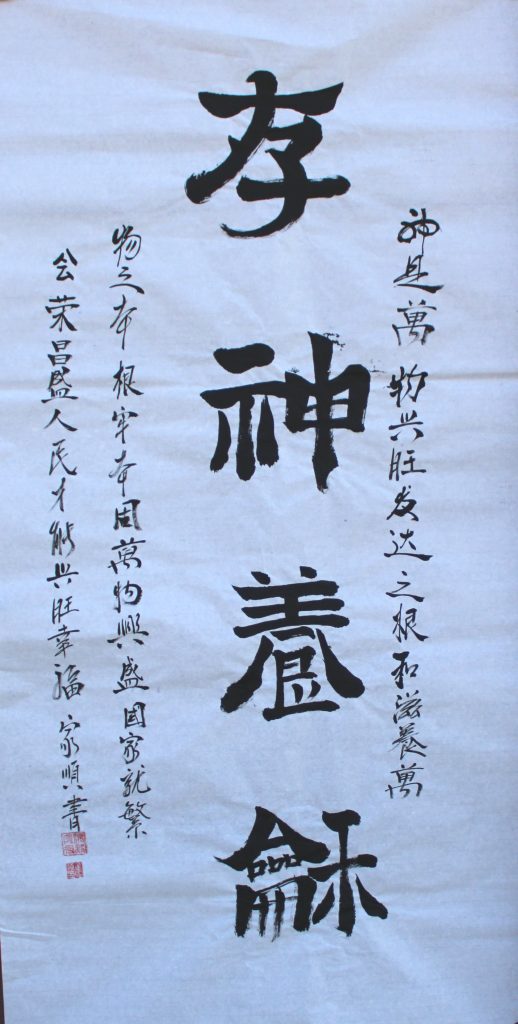 存神養龢
神是萬物兴旺发达之根和滋養萬
物之本根牢本固萬物興盛国家就繁
会荣昌盛人民才能兴旺幸福 家順書